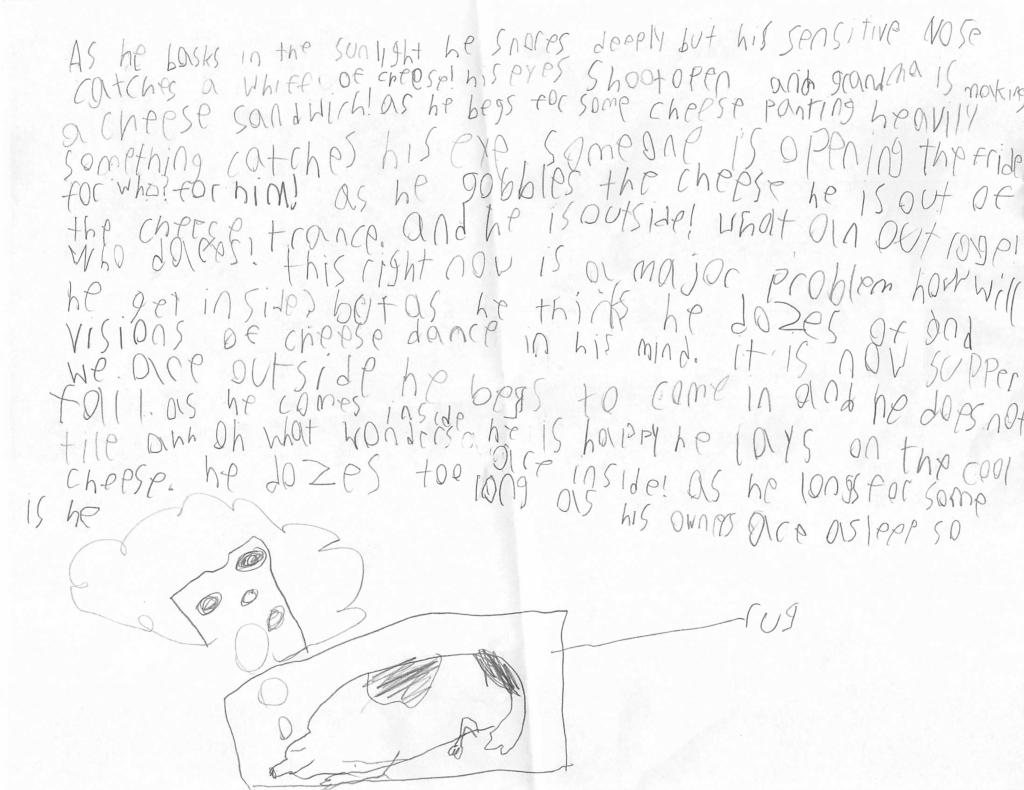 As he basks in the sunlight he snores deeply but his sensitive Nose
catches a whiff. of cheese! his eyes shoot open and grandma is making
a cheese sandwich! as he begs for some cheese panting heavily
something catches his eye someone is opening the fride
for who? for him! as he gobbles the cheese he is out of
the cheese trance. and he is outside! what an outrage!
who dares! this right now is a major problem how will
he get inside? but as he thinks he dozes of and
visions of cheese dance in his mind. it is now supper
we are outside he begs to come in and he does not
fall. as he comes inside he is happy he lays on the cool
tile ahh oh what wonders are inside! as he longs for some
cheese. he dozes too long as his owners are asleep so
is he
rug